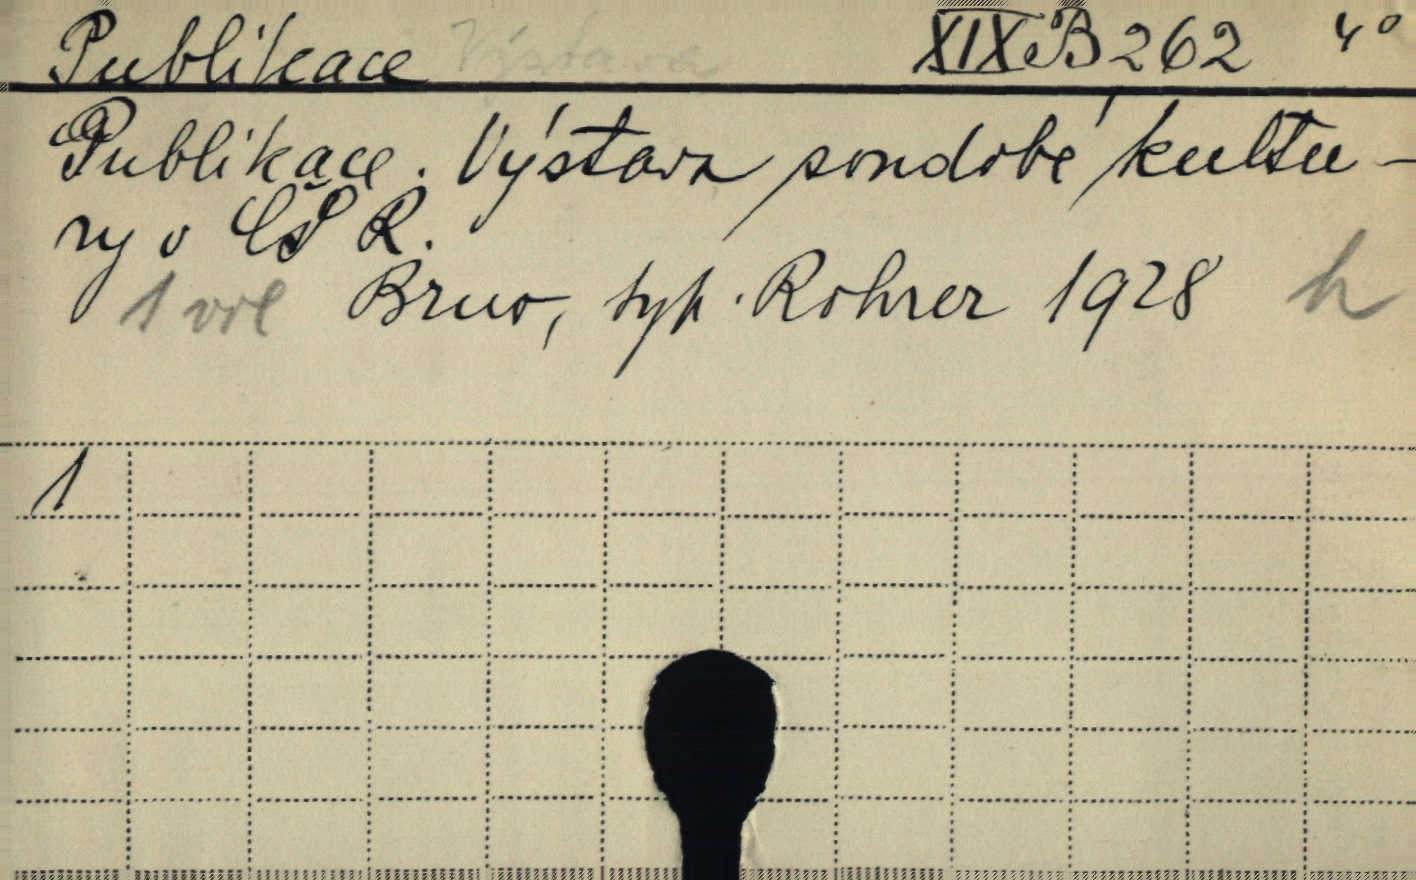 Publikace Výstava XIX B 262 4°
Publikace. Výstava soudobé kultu-
ry v ČSR.
1 vol Brno, typ. Rohrer 1928 h
1